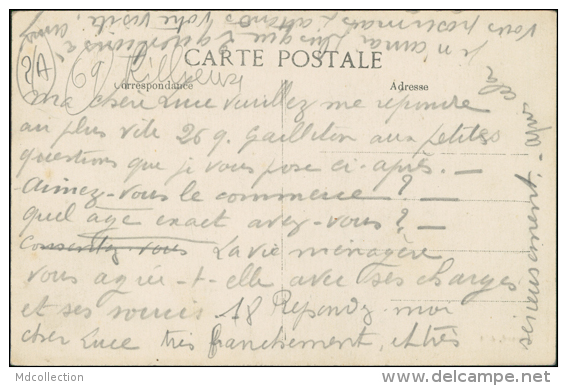 CARTE POSTALE
Correspondance
Adresse
2A
69 Rillieux
Ma chère Luce veuillez me répondre
au plus vite 26 q. Gailleton aux petites
questions que je vous pose ci-après. —
Aimez-vous le commerce ? —
quel age exact avez-vous ? —
Consentez-vous La vie ménagère
vous agrée-t-elle avec ses charges
et ses soucis 18 Repondez-moi
cher Luce très franchement, et très
sérieusement. - après
vous
votre visite,
delcampe.net
Mdcollection